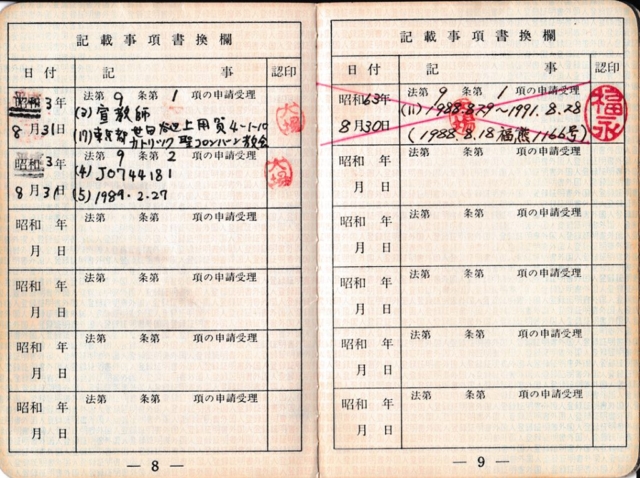 記載事項書換欄
日付 記 事 認印
昭和 3年 法第 9 条第 1 項の申請受理
宣教師
8月31日 東京都世田谷区上用賀4-1-10
カトリック聖コロンバン教会
大場
昭和 3年 法第 9 条第 2
(4) J0744181
8月31 (5) 1989.2.27
大場
昭和 年 法第 条第 項の申請受理
月 日
昭和 年 法第 条第 項の申請受理
月 日
昭和 年 法第 条第 項の申請受理
月 日
昭和 年 法第 条第 項の申請受理
月 日
— 8 —
記載事項書換欄
日付 記 事 認印
昭和63年 法第 9 条第 1 項の申請受理
(11) 1988.8.29~1991.8.28
8月30日 (1988.8.18福熊1166号)
福永
昭和 年 法第 条第 項の申請受理
月 日
昭和 年 法第 条第 項の申請受理
月 日
昭和 年 法第 条第 項の申請受理
月 日
昭和 年 法第 条第 項の申請受理
月 日
昭和 年 法第 条第 項の申請受理
月 日
— 9 —